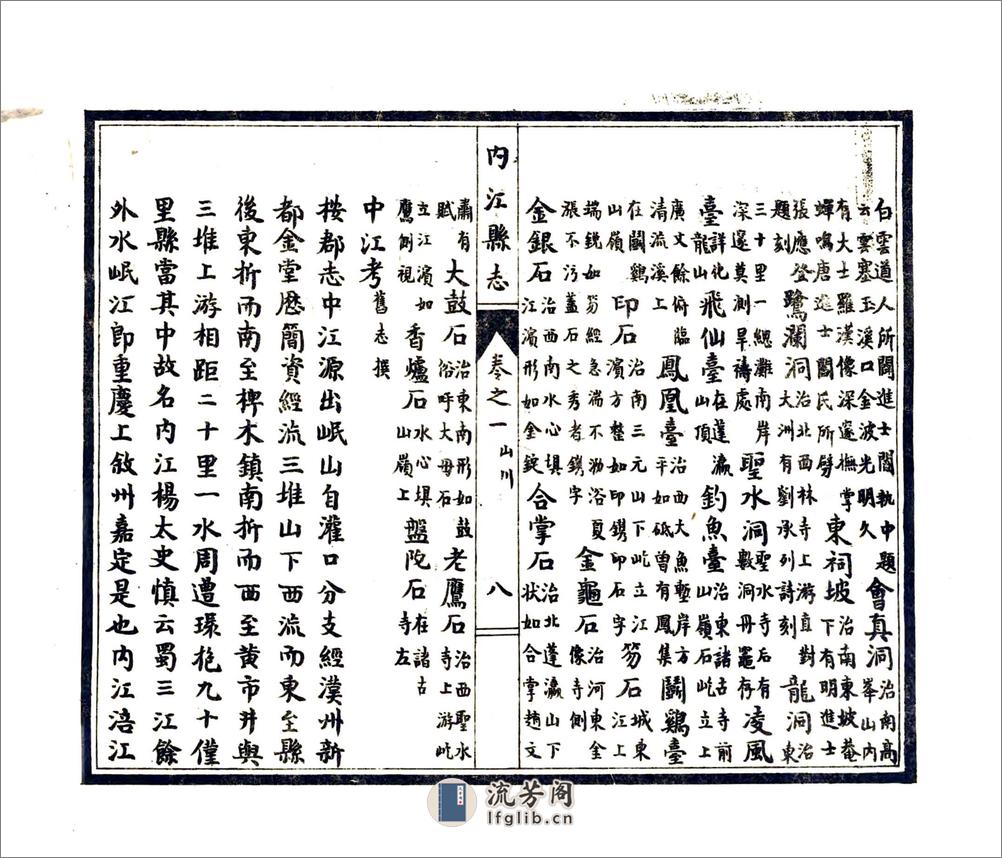 白雲道人所闢進士閻執中題云雲塞玉溪口金波光明久會真洞治南高峯山內
有大士羅漢像深邃撫掌蟬鳴唐進士閻氏所劈東祠坡治南東坡菴下有明進士
張應登題刻鷺瀾洞治北西林寺上游真對大洲有劉承列詩刻龍洞治東
三十里一總灘南岸深邃莫測旱禱處聖水洞聖水寺后有數洞丹竈存凌風
臺詳化龍山飛仙臺在蓬瀛山頂釣魚臺治東諸古寺前山嶺石屹立上
廣文餘俯臨清流溪上鳳凰臺治西大魚塹岸方平如砥曾有鳳集鬪鷄臺
在鬪鷄山嶺印石治南三元山下屹立江濱方整如印鐫印石字笏石城東江上
端銳如笏經急湍不泐浴夏張不污蓋石之秀者鐫字金龜石治河東金像寺側
金銀石治西南水心塤江濱形如金錠合掌石治北蓬瀛山下狀如合掌趙文
內江縣志 卷之一 山川 八
肅有賦大鼓石治東南形如鼓俗呼大母石老鷹石治西聖水寺上游屹
立江濱如鷹側視香爐石治水心塤山嶺上盤陀石在諸古寺左
中江考舊志撰
按郡志中江源出岷山自灌口分支經漢州新
都金堂歷簡資經流三堆山下西流而東至縣
後東折而南至椑木鎮南折而西至黄市井與
三堆上游相距二十里一水周遭環抱九十僅
里縣當其中故名內江楊太史慎云蜀三江餘
外水岷江即重慶上敘州嘉定是也內江涪江
流芳阁
lfglib.cn